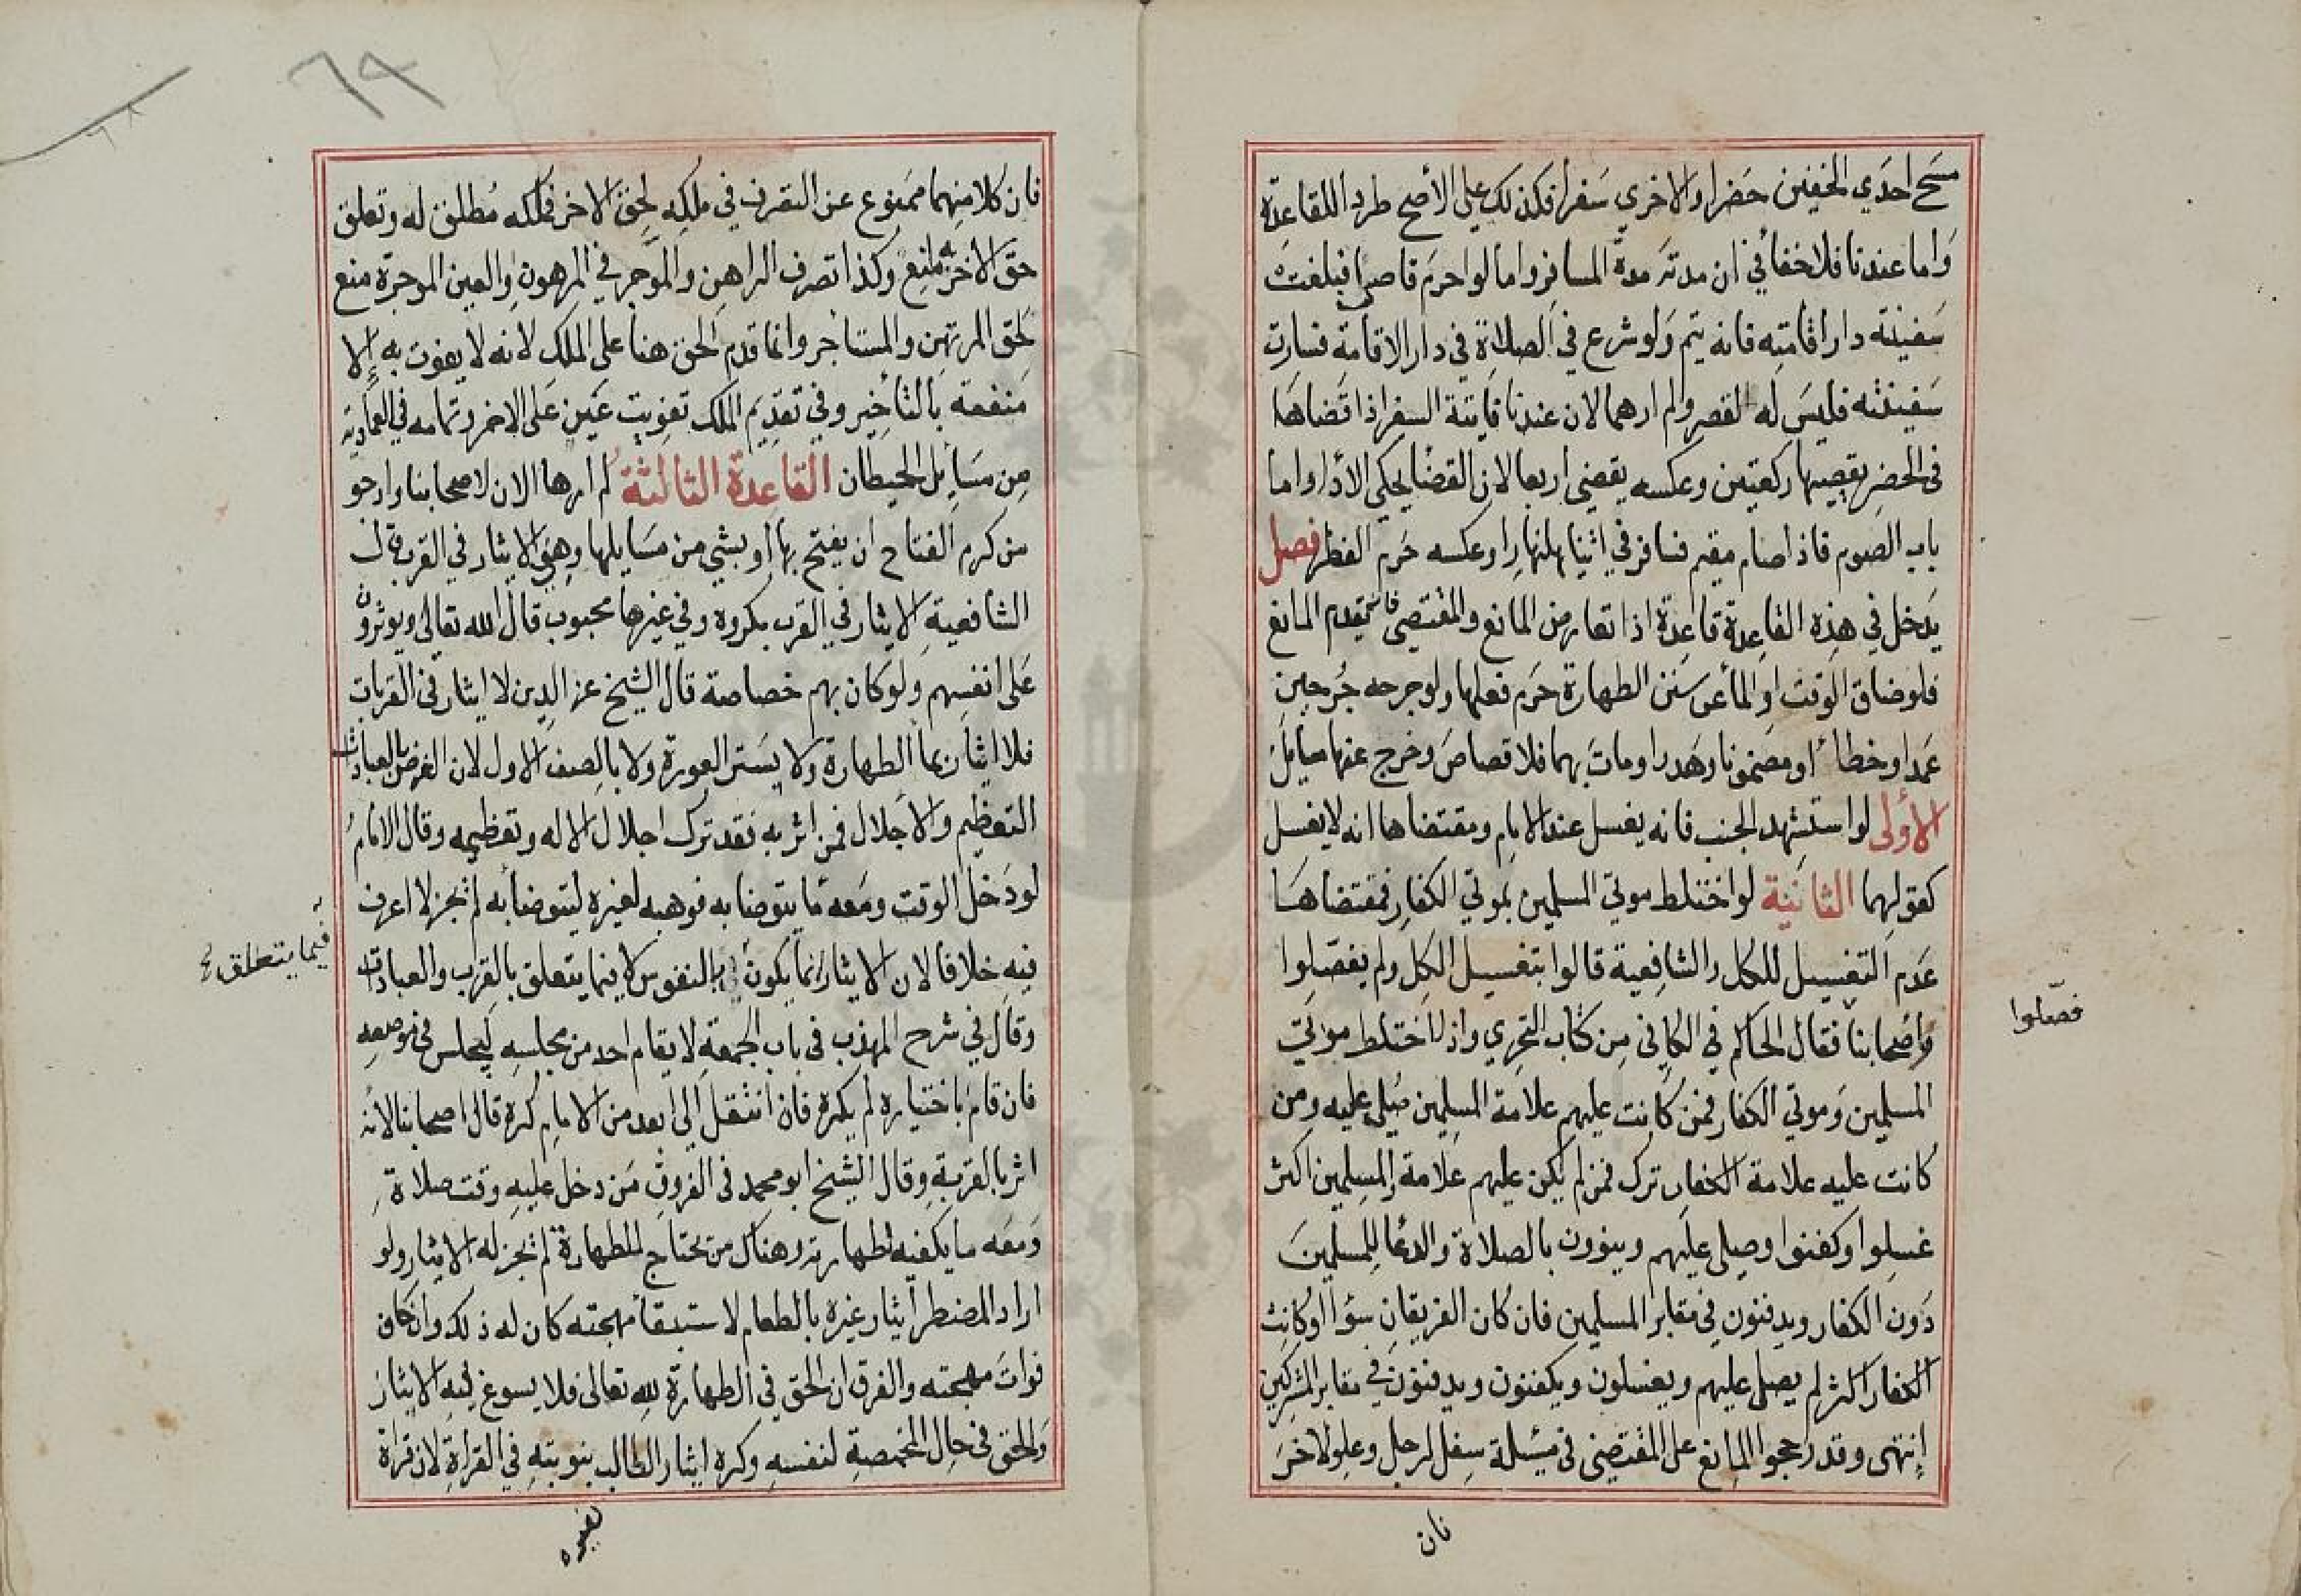 مسح احدي الخفين حضرا والاخري سفرا فكذلك علي الأصح طردا للقاعدة
واما عندنا فلا خفأ في ان مدته مدة المسافر واما لو احرم قاصرا فبلغت
سفينته دار اقامته فانه يتم ولو شرع في الصلاة في دار الاقامة فسارت
سفينته فليس له القصر ولم ارهما لان عندنا فايتة السفر اذا قضاها
في الحضر يقصيها ركعتين وعكسه يقضي اربعا لان القضأ يحكي الأداء واما
باب الصوم فاذا صام مقيم فسافر في اثنا النهار او عكسه حرم الفطر فصل
يدخل في هذه القاعدة قاعدة اذا تعارض المانع والمقتضي فانه يقدم المانع
فلو ضاق الوقت او المأ عن سنن الطهارة حرم فعلها ولو جرحه جرحين
عمدا وخطأ او مضمونا وهدرا ومات بهما فلا قصاص وخرج عنها مسايل
الاولي لو استشهد الجنب فانه يغسل عند الامام ومقتضاها انه لا يغسل
كقولهما الثانية لو اختلط موتي المسلمين بموتي الكفار فمقتضاها
عدم التغسيل للكل والشافعية قالوا بتغسيل الكل ولم يفصلوا
واصحابنا فقال الحاكم في الكافي من كتاب التحري واذا اختلط موتي
المسلمين وموتي الكفار فمن كانت عليهم علامة المسلمين صلي عليه ومن
كانت عليه علامة الكفار ترك فمن لم يكن عليهم علامة والمسلمين اكثر
غسلوا وكفنوا وصلي عليهم وينوون بالصلاة والدعا للمسلمين
دون الكفار ويدفنون في مقابر المسلمين فان كان الفريقان سوأ او كانت
الكفار اكثر لم يصل عليهم ويغسلون ويكفنون ويدفنون في مقابر المشركين
انتهى وقد رجحوا المانع على المقتضي في مسئلة سفل لرجل وعلو لاخر
فصلوا
فان
٦٩
فان كلا منهما ممنوع عن التصرف في ملكه لحق الاخر فملكه مطلق له وتعلق
حق الاخر به مانع وكذا تصرف الراهن والموجر في المرهون والعين الموجرة منع
لحق المرتهن والمستاجر وانما قدم الحق هنا على الملك لانه لا يفوت به إلا
منفعة بالتأخير وفي تقديم الملك تفويت عين على الاخر وتمامه في العمادية
من مسايل الحيطان القاعدة الثالثة لم ارها الان لاصحابنا وارجو
من كرم الفتاح ان يفتح بها او بشي من مسايلها وهي الايثار في القرب قال
الشافعية الايثار في القرب مكروه وفي غيرها محبوب قال الله تعالى ويوثرون
على انفسهم ولو كان بهم خصاصة قال الشيخ عز الدين لا ايثار في القربات
فلا ايثار بما الطهارة ولا بستر العورة ولا بالصف الاول لان الغرض بالعبادات
التعظيم والاجلال فمن اثر به فقد ترك اجلال الاله وتعظيمه وقال الامام
لو دخل الوقت ومعه ما يتوضا به فوهبه لغيره ليتوضأ به لم تجز لا اعرف
فيه خلافا لان الايثار انما يكون بالنفوس لا فيما يتعلق بالقرب والعبادات
وقال في شرح المهذب في باب الجمعة لا يقام احد من مجلسه ليجلس في موضعه
فان قام باختياره لم يكره فان انتقل الى ابعد من الامام كره قال اصحابنا لانه
اثر بالقربة وقال الشيخ ابو محمد في الفروق من دخل عليه وقت صلاة
ومعه ما يكفيه لطهارته وهناك من يحتاج للطهارة لم تجز له الايثار ولو
اراد المضطر ايثار غيره بالطعام لاستبقأ مهجته كان له ذلك وان كان
فوات مهجته والفرق ان الحق في الطهارة لله تعالى فلا يسوغ فيه الايثار
والحق في حال المخمصة لنفسه وكره ايثار الطالب بنوبته في القراة لان قراة
فيما يتعلق